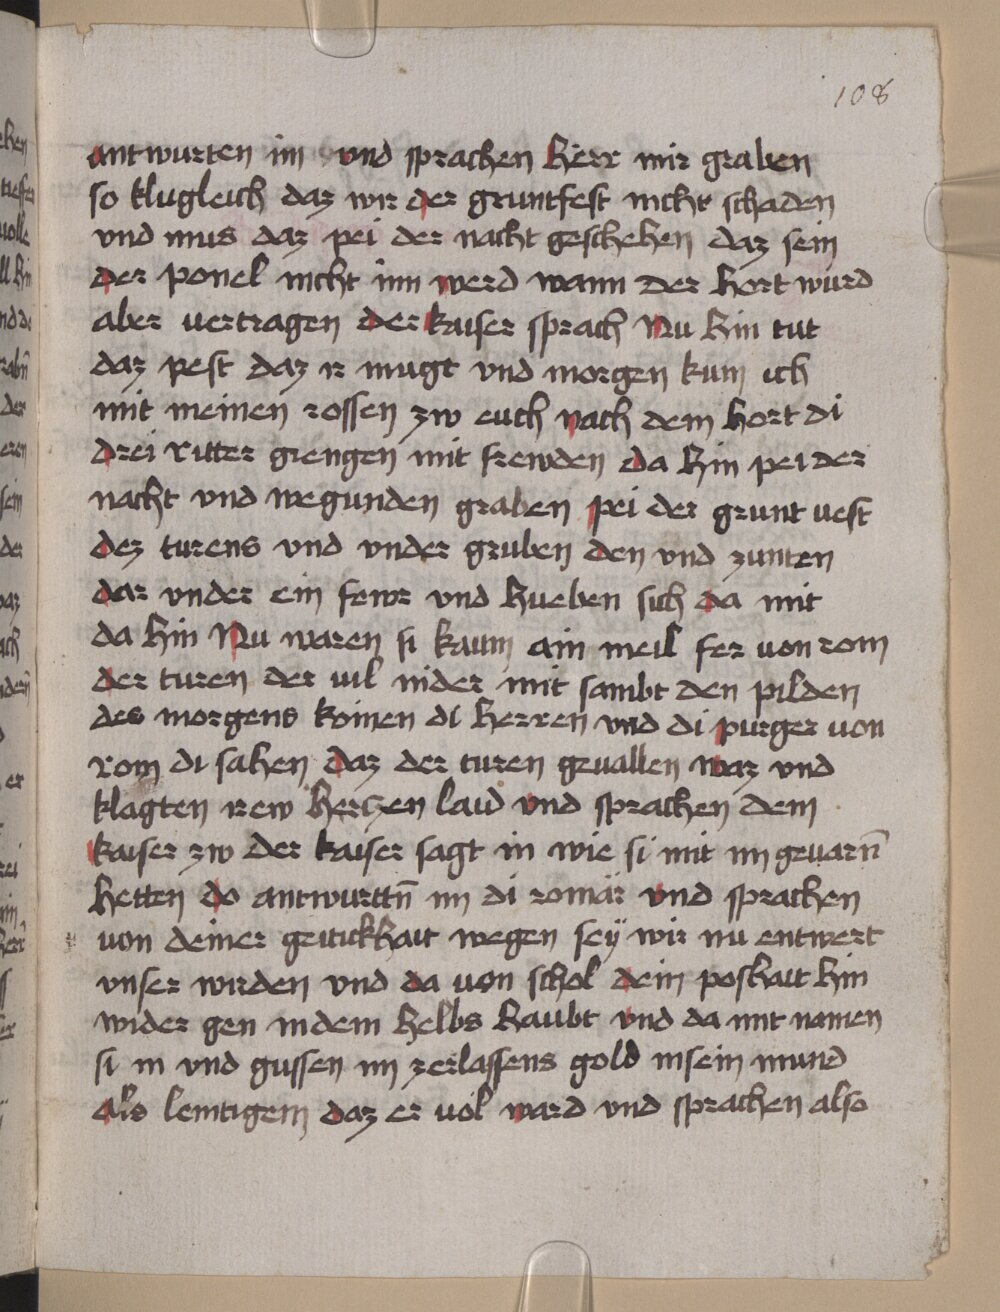 108
antwurten im vnd sprachen herr mir graben
so klugleich daz wir der gruntfest nicht schaden
vnd mus daz pei der nacht geschehen daz sein
der ponel nicht inn werd wann der hort wurd
aber vertragen der kaiser sprach Nu hin tut
daz pest daz ir mugt vnd morgen kum ich
mit meinen rossen zw euch nach dem hort di
drei ritter giengen mit frewden da hin pei der
nacht vnd wegunden graben pei der grunt uest
dez turens vnd vnder gruben den vnd zunten
dar vnder ein fewr vnd hueben sich da mit
da hin Nu waren si kaum ain meil fer von rom
der turen der uil nider mit sambt den pilden
des morgens komen di herren vnd di purger von
rom di sahen daz der turen geuallen waz vnd
klagten irew herczen laid vnd sprachen dem
kaiser zw der kaiser sagt in wie si mit im geuarn̄
hetten do antwurttn̄ im di romär vnd sprachen
von deiner geitickhait wegen seÿ wir nu entwert
vnser wirden vnd da von schol dein poshait hin
wider gen in dein selbs haubt vnd da mit namen
si in vnd gussen im zerlassens gold in sein mund
als lemtigem daz er vol ward vnd sprachen also